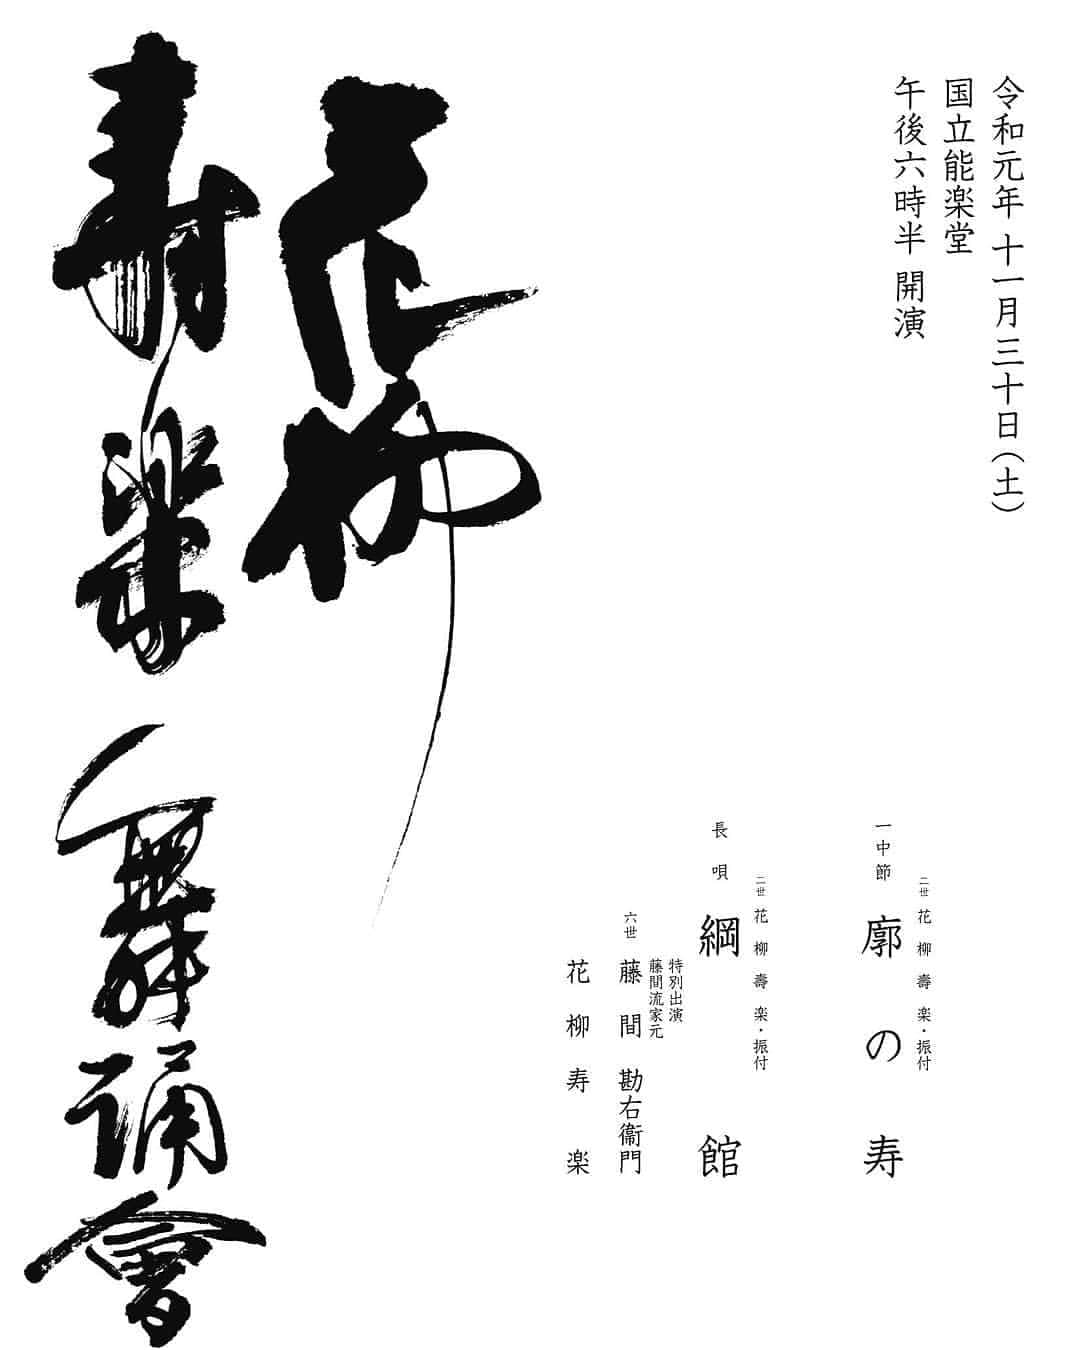 令和元年 十一月三十日(土)
国立能楽堂
午後六時半 開演
二世 花柳壽楽・振付
一中節 廓の寿
二世 花柳壽楽・振付
長唄 綱館
特別出演
藤間流家元
六世 藤間勘右衞門
花柳寿楽
花柳
寿楽 舞踊會